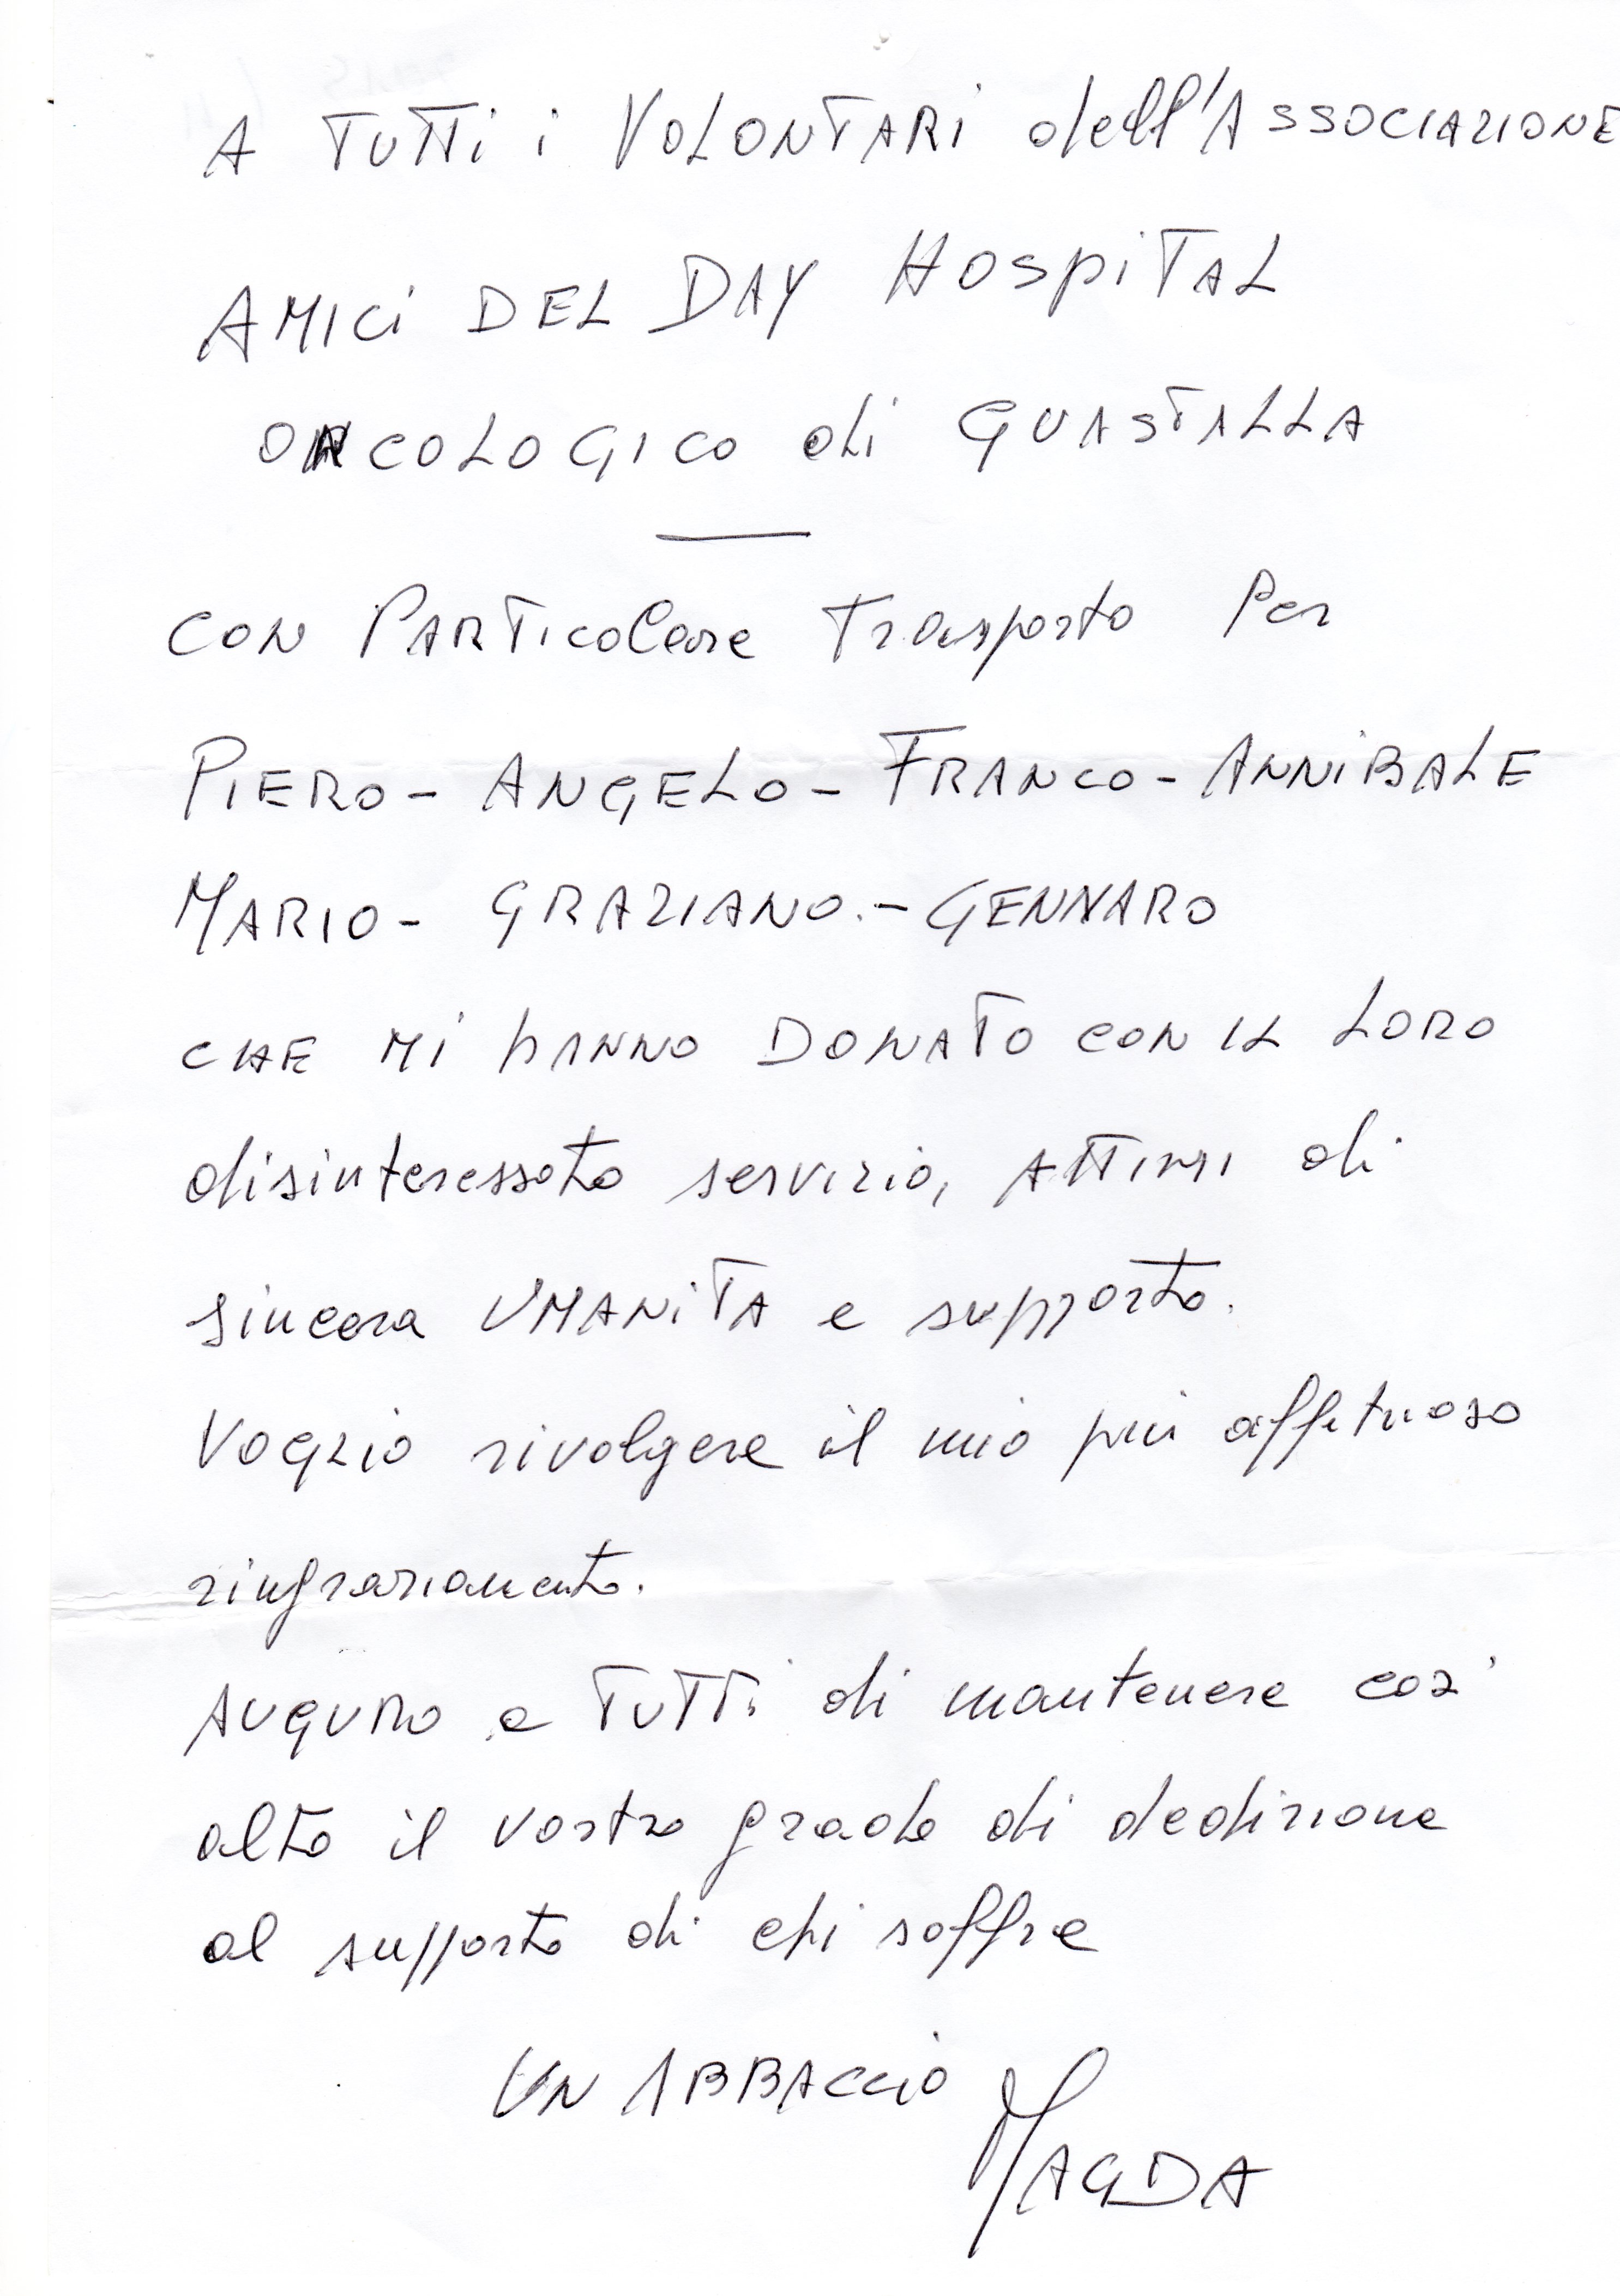 A TUTTi i VOLONTARi dell'ASSOCIAZIONE
AMICi DEL DAY HOspiTAL
ONCOLOGICO di GUASTALLA
CON PARTicolare Trasporto Per
PIERO - ANGELO - FRANCO - ANNiBALE
MARIO - GRAZIANO. - GENNARO
CHE Mi hANNO DONATO CON IL LORO
disinteressato servizio, ATTIMI di
sincera UMANiTA e supporto.
VOGLIO rivolgere il mio più affetuoso
ringraziamento.
AUGURO a TUTTi di mantenere cosi'
alto il vostro grado di dedizione
al supporto di chi soffre
UN ABBACCiO
MAGDA